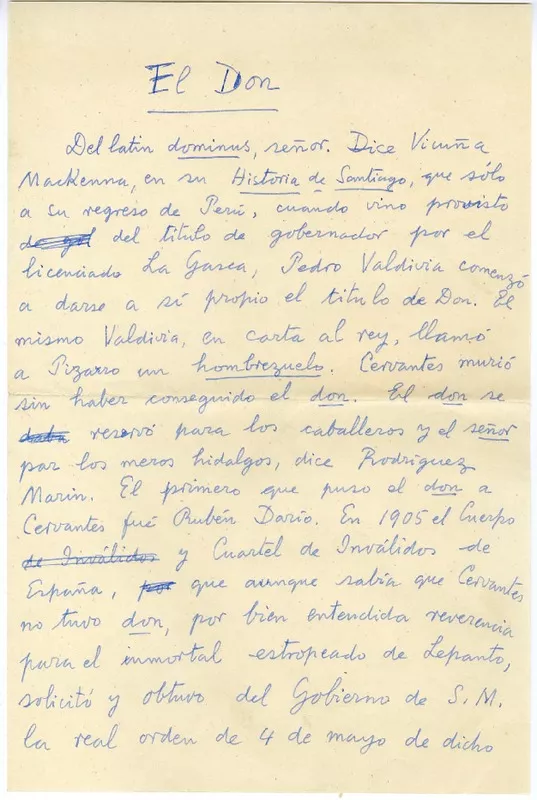 El Don
Del latin dominus, señor. Dice Vicuña
Mackenna, en su Historia de Santiago, que sólo
a su regreso de Perú, cuando vino provisto
de gol del titulo de gobernador por el
licenciado La Gasca, Pedro Valdivia comenzó
a darse a sí propio el titulo de Don. El
mismo Valdivia, en carta al rey, llamó
a Pizarro un hombrezuelo. Cervantes murió
sin haber conseguido el don. El don se
daba reservó para los caballeros y el señor
par los meros hidalgos, dice Rodríguez
Marin. El primero que puso el don a
Cervantes fué Rubén Darío. En 1905 el Cuerpo
de Inválidos y Cuartel de Inválidos de
España, por que aunque sabía que Cervantes
no tuvo don, por bien entendida reverencia
para el inmortal estropeado de Lepanto,
solicitó y obtuvo del Gobierno de S. M.
la real orden de 4 de mayo de dicho